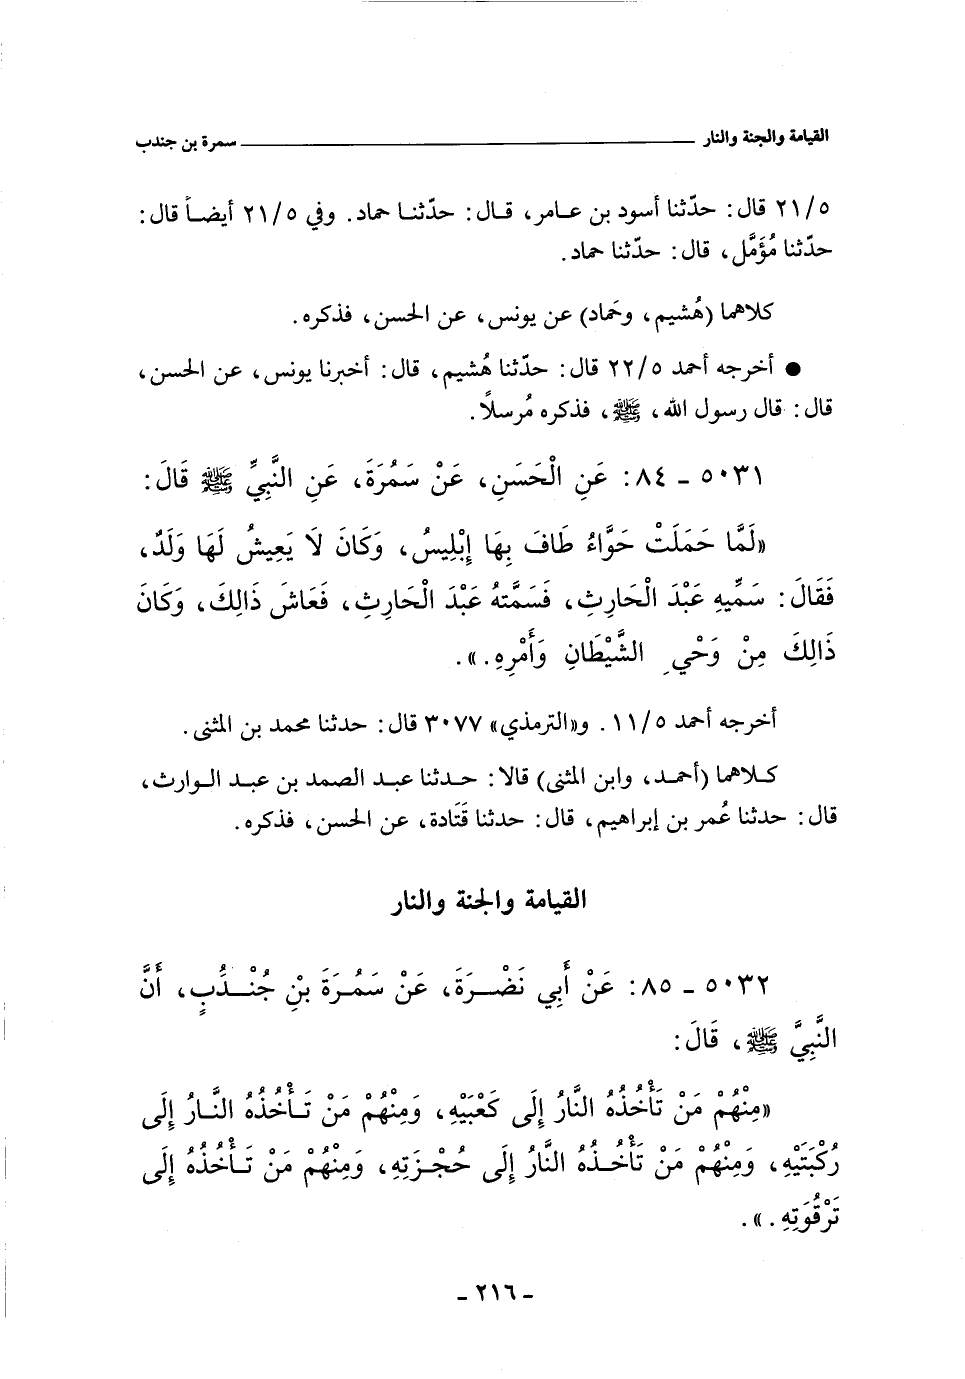 القيامة والجنة والنار ــــــــــ سمرة بن جندب
٢١/٥ قال: حدّثنا أسود بن عامر، قال: حدّثنا حماد. وفي ٢١/٥ أيضاً قال:
حدّثنا مُؤَمَّل، قال: حدّثنا حماد.
كلاهما (هُشيم، وحَماد) عن يونس، عن الحسن، فذكره.
● أخرجه أحمد ٢٢/٥ قال: حدّثنا هُشيم، قال: أخبرنا يونس، عن الحسن،
قال: قال رسول الله، ﷺ، فذكره مُرسلاً.
٥٠٣١ - ٨٤: عَنِ الْحَسَنِ، عَنْ سَمُرَةَ، عَنِ النَّبِيِّ ﷺ قَالَ:
«لَمَّا حَمَلَتْ حَوَّاءُ طَافَ بِهَا إِبْلِيسُ، وَكَانَ لَا يَعِيشُ لَهَا وَلَدٌ،
فَقَالَ: سَمِّيهِ عَبْدَ الْحَارِثِ، فَسَمَّتْهُ عَبْدَ الْحَارِثِ، فَعَاشَ ذَالِكَ، وَكَانَ
ذَالِكَ مِنْ وَحْيِ الشَّيْطَانِ وَأَمْرِهِ.».
أخرجه أحمد ١١/٥. و«الترمذي» ٣٠٧٧ قال: حدثنا محمد بن المثنى.
كلاهما (أحمد، وابن المثنى) قالا: حدثنا عبد الصمد بن عبد الوارث،
قال: حدثنا عُمر بن إبراهيم، قال: حدثنا قَتَادة، عن الحسن، فذكره.
القيامة والجنة والنار
٥٠٣٢ - ٨٥: عَنْ أَبِي نَضْرَةَ، عَنْ سَمُرَةَ بْنِ جُنْدُبٍ، أَنَّ
النَّبِيَّ ﷺ، قَالَ:
«مِنْهُمْ مَنْ تَأْخُذُهُ النَّارُ إِلَى كَعْبَيْهِ، وَمِنْهُمْ مَنْ تَأْخُذُهُ النَّارُ إِلَى
رُكْبَتَيْهِ، وَمِنْهُمْ مَنْ تَأْخُذُهُ النَّارُ إِلَى حُجْزَتِهِ، وَمِنْهُمْ مَنْ تَأْخُذُهُ إِلَى
تَرْقُوَتِهِ.».
- ٢١٦ -